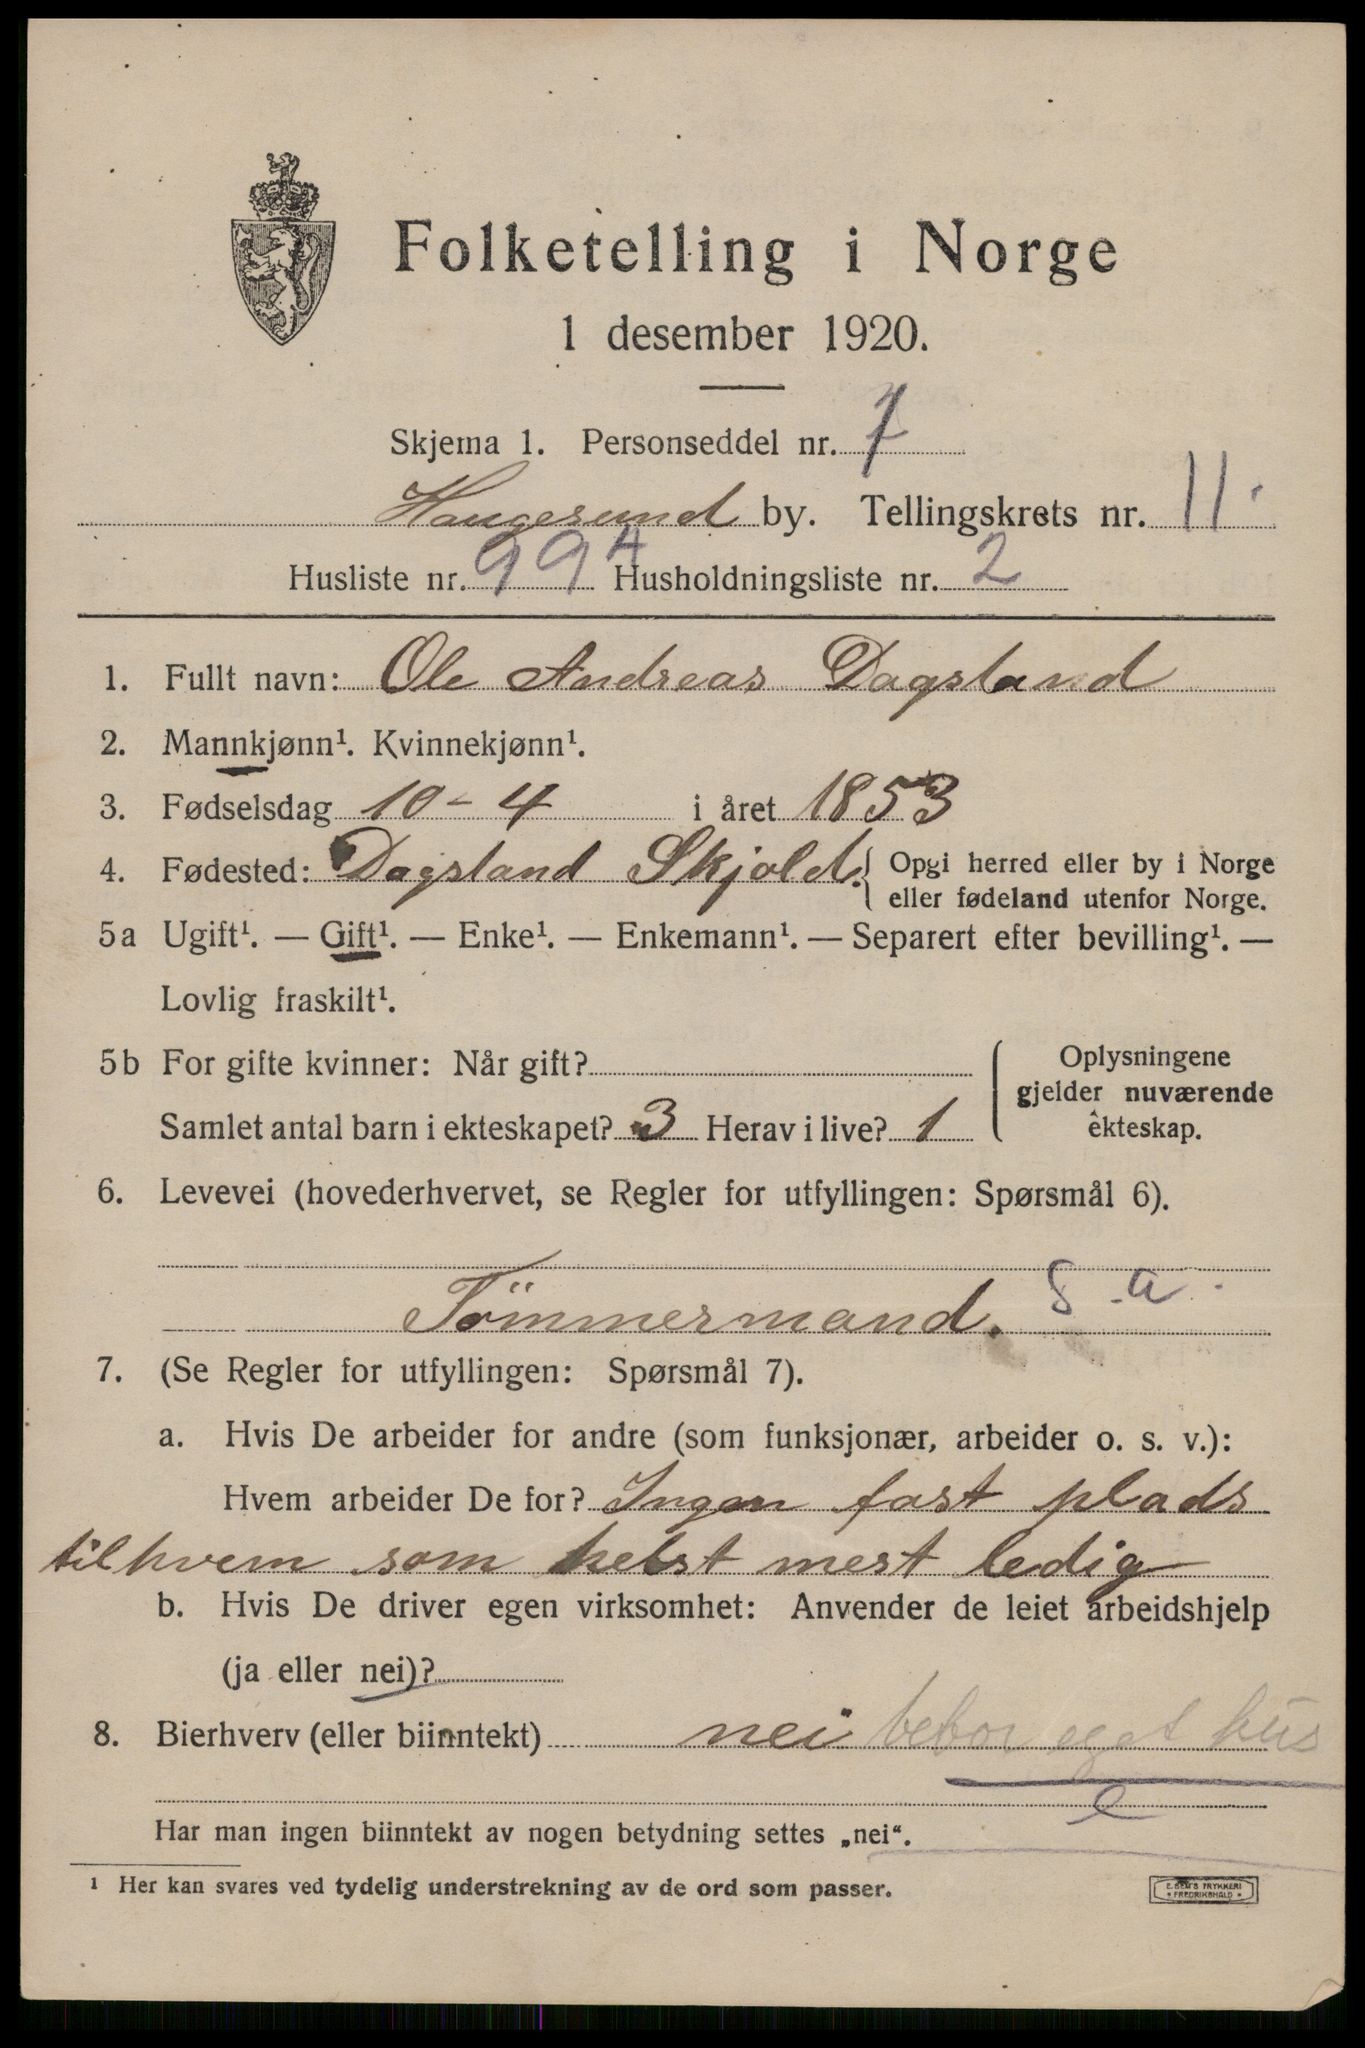 Folketelling i Norge
1 desember 1920.
Skjema 1. Personseddel nr. 7
Haugesund by. Tellingskrets nr. 11.
Husliste nr. 99A Husholdningsliste nr. 2
1. Fullt navn: Ole Andreas Dagsland
2. Mannkjønn¹. Kvinnekjønn¹.
3. Fødselsdag 10-4 i året 1853
4. Fødested: Dagsland Skjold. { Opgi herred eller by i Norge
eller fødeland utenfor Norge.
5a Ugift¹. — Gift¹. — Enke¹. — Enkemann¹. — Separert efter bevilling¹. —
Lovlig fraskilt¹.
5b For gifte kvinner: Når gift?
Samlet antal barn i ekteskapet? 3 Herav i live? 1
Oplysningene
gjelder nuværende
ekteskap.
6. Levevei (hovederhvervet, se Regler for utfyllingen: Spørsmål 6).
Tömmermand. 8 a.
7. (Se Regler for utfyllingen: Spørsmål 7).
a. Hvis De arbeider for andre (som funksjonær, arbeider o. s. v.):
Hvem arbeider De for? Ingen fast plads
til hvem som helst mest ledig
b. Hvis De driver egen virksomhet: Anvender de leiet arbeidshjelp
(ja eller nei)?
8. Bierhverv (eller biinntekt) nei bebor eget hus
e
Har man ingen biinntekt av nogen betydning settes „nei“.
¹ Her kan svares ved tydelig understrekning av de ord som passer.
E. SEM'S TRYKKERI
FREDRIKSHALD